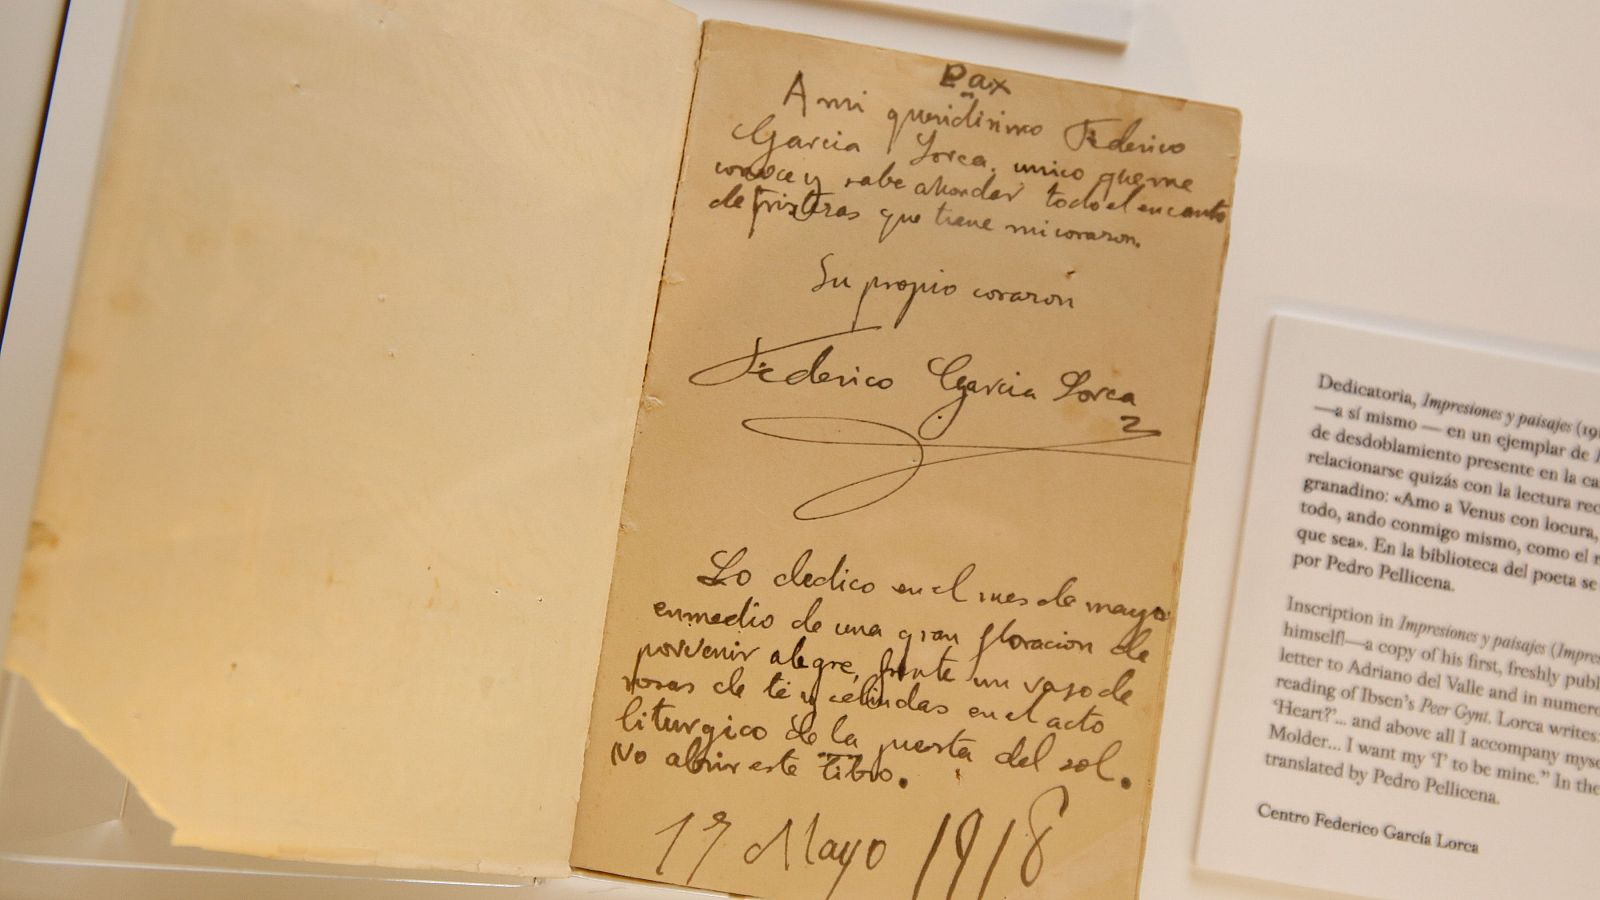 Pax
A mi queridisimo Federico
Garcia Lorca, unico que me
conoce y sabe ahondar todo el encanto
de tristezas que tiene mi corazon.
Su propio corazon
Federico Garcia Lorca
Lo dedico en el mes de mayo
en medio de una gran floracion de
porvenir alegre, frente un vaso de
rosas de té y celindas en el acto
liturgico de la puesta del sol.
No abrir este libro.
17 Mayo 1918
Dedicatoria, Impresiones y paisajes (19
—a sí mismo — en un ejemplar de
de desdoblamiento presente en la ca
relacionarse quizás con la lectura rec
granadino: «Amo a Venus con locura,
todo, ando conmigo mismo, como el
que sea». En la biblioteca del poeta se
por Pedro Pellicena.
Inscription in Impresiones y paisajes (Impres
himself!—a copy of his first, freshly publ
letter to Adriano del Valle and in numero
reading of Ibsen's Peer Gynt. Lorca writes:
'Heart?'... and above all I accompany myse
Molder... I want my 'I' to be mine." In the
translated by Pedro Pellicena.
Centro Federico García Lorca